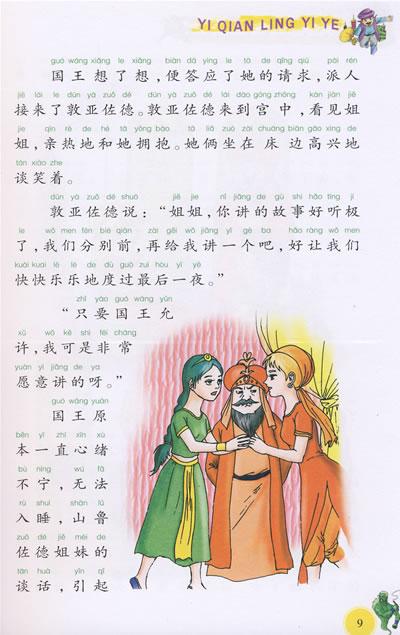 YI QIAN LING YI YE
guó wáng xiǎng le xiǎng biàn dā yìng le tā de qǐng qiú pài rén
国王想了想，便答应了她的请求，派人
jiē lái le dūn yà zuǒ dé dūn yà zuǒ dé lái dào gōng zhōng kàn jiàn jiě
接来了敦亚佐德。敦亚佐德来到宫中，看见姐
jie qīn rè de hé tā yōng bào tā liǎ zuò zài chuáng biān gāo xìng de
姐，亲热地和她拥抱。她俩坐在床边高兴地
tán xiào zhe
谈笑着。
dūn yà zuǒ dé shuō jiě jie nǐ jiǎng de gù shi hǎo tīng jí
敦亚佐德说：“姐姐，你讲的故事好听极
le wǒ men fēn bié qián zài gěi wǒ jiǎng yī gè ba hǎo ràng wǒ men
了，我们分别前，再给我讲一个吧，好让我们
kuài kuai lè lè de dù guò zuì hòu yī yè
快快乐乐地度过最后一夜。”
zhǐ yào guó wáng yǔn
“只要国王允
xǔ wǒ kě shì fēi cháng
许，我可是非常
yuàn yì jiǎng de ya
愿意讲的呀。”
guó wáng yuán
国王原
běn yī zhí xīn xù
本一直心绪
bù níng wú fǎ
不宁，无法
rù shuì shān lǔ
入睡，山鲁
zuǒ dé jiě mèi de
佐德姐妹的
tán huà yǐn qǐ
谈话，引起
9